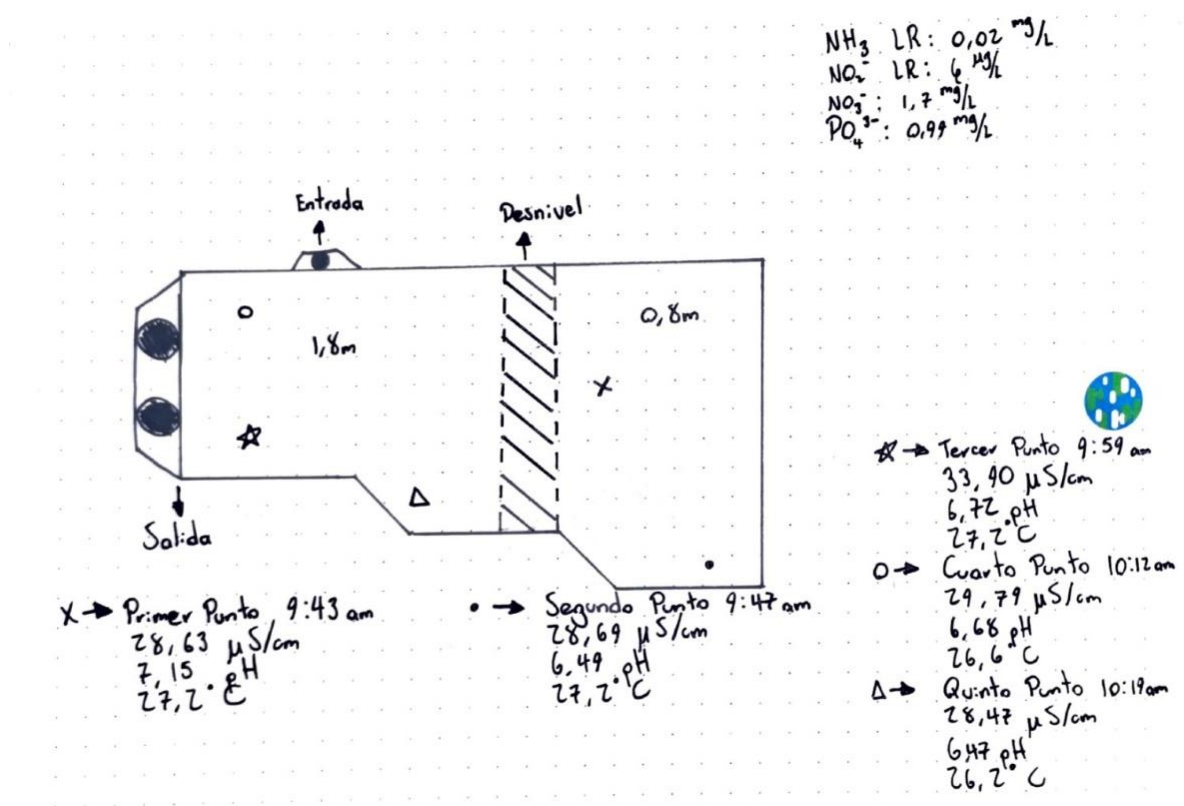 NH3 LR: 0,02 mg/L
NO2- LR: 6 µg/L
NO3-: 1,7 mg/L
PO4 3-: 0,99 mg/L
Entrada
Desnivel
0,8m
1,8m
Salida
X → Primer Punto 9:43 am
28,63 µS/cm
7,15 pH
27,2°C
• → Segundo Punto 9:47 am
28,69 µS/cm
6,49 pH
27,2°C
☆ → Tercer Punto 9:59 am
33,90 µS/cm
6,72 pH
27,2°C
O → Cuarto Punto 10:12 am
29,79 µS/cm
6,68 pH
26,6°C
Δ → Quinto Punto 10:19 am
28,47 µS/cm
6,47 pH
26,2°C